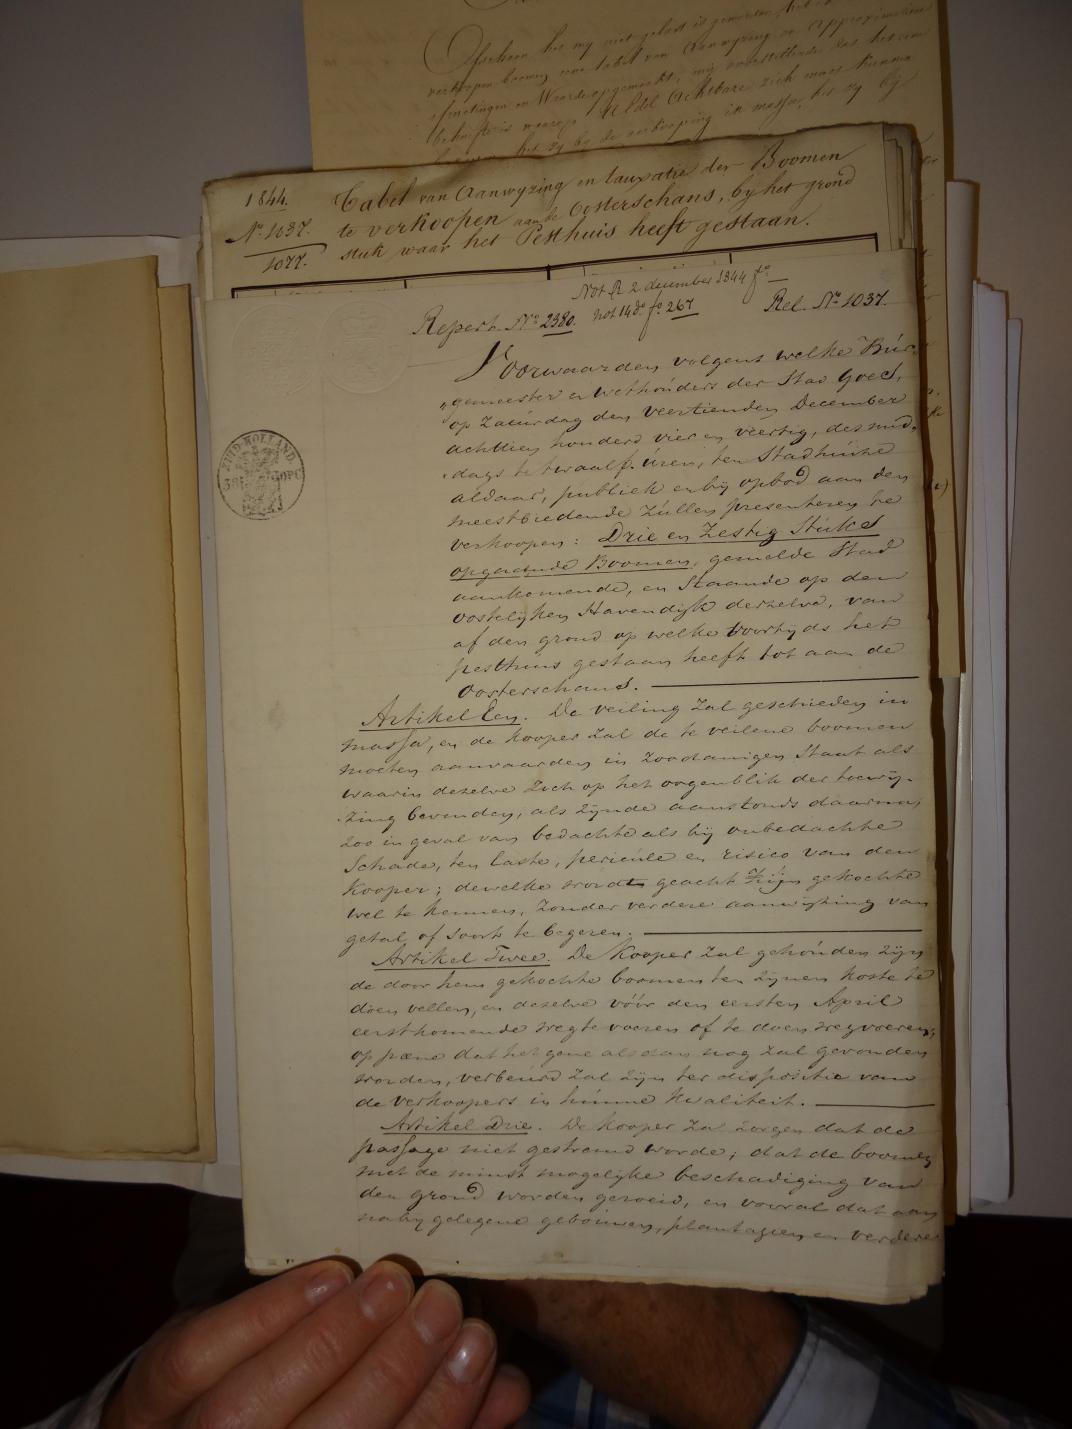 Ofschoon het mij niet gelast is geworden, het
verkoopen boomen eene tabel van Aanwyzing en approximative
Edel Achtbare zich mogt kunnen
het zy by de verkooping in massa, het zy by
1844.
N.o 1037.
1077.
Tabel van Aanwyzing en tauxatie der Boomen
te verkoopen aan de Oosterschans, by het grond
stuk waar het Pesthuis heeft gestaan.
Not A 2 december 1844 fo
Not 14 do fo 267
Repert. No 2380.
Rel. No 1037.
ZUID-HOLLAND.
38
OPC
Voorwaarden, volgens welke Bur-
„gemeester en Wethouders der Stad Goes,
op Zaturdag den veertienden December
achttien honderd vier en veertig, des mid-
„dags te twaalf uren, ten Stadhuize
aldaar, publiek en bij opbod aan den
meestbiedende zullen presenteren te
verkoopen: Drie en Zestig Stuks
opgaande Boomen, gemelde Stad
aankomende, en Staande op den
oostelijken Havendijk derzelve, van
af den grond op welke voortijds het
pesthuis gestaan heeft tot aan de
Oosterschans.
Artikel Een. De veiling zal geschieden in
massa, en de kooper zal de te veilene boomen
moeten aanvaarden in zoodanigen Staat als
waarin dezelve zich op het oogenblik der toewij-
„zing bevinden, als zijnde aanstonds daarna,
zoo in geval van bedachte als bij onbedachte
Schade, ten laste, pericule en risico van den
Kooper; dewelke wordt geacht zijn gekochte
wel te kennen, zonder verdere aanwijzing van
getal of soort te begeren.
Artikel Twee. De Kooper zal gehouden zijn
de door hem gekochte boomen ten zijnen koste te
doen vellen, en dezelve vóór den eersten April
eerstkomende weg te voeren of te doen wegvoeren,
op pæne dat het gene alsdan nog zal gevonden
worden, verbeurd zal zijn ter dispositie van
de verkoopers in hunne kwaliteit.
Artikel Drie. De Kooper zal zorgen dat de
passage niet gestremd worde; dat de boomen
met de minst mogelijke beschadiging van
den grond worden geroeid, en vooral dat aan
nabij gelegene gebouwen, plantagien en verdere